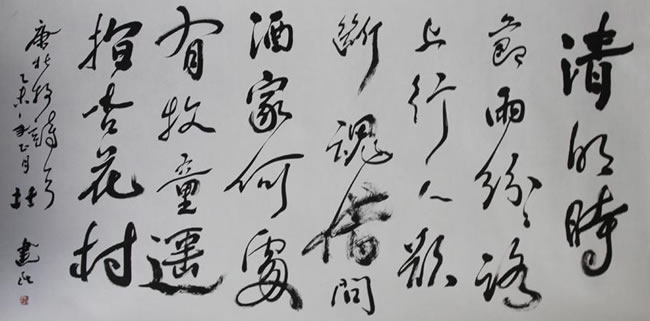 清明時
節雨紛々路
上行人欲
断魂借問
酒家何處
有牧童遥
指杏花村
唐杜牧詩
乙未年正月